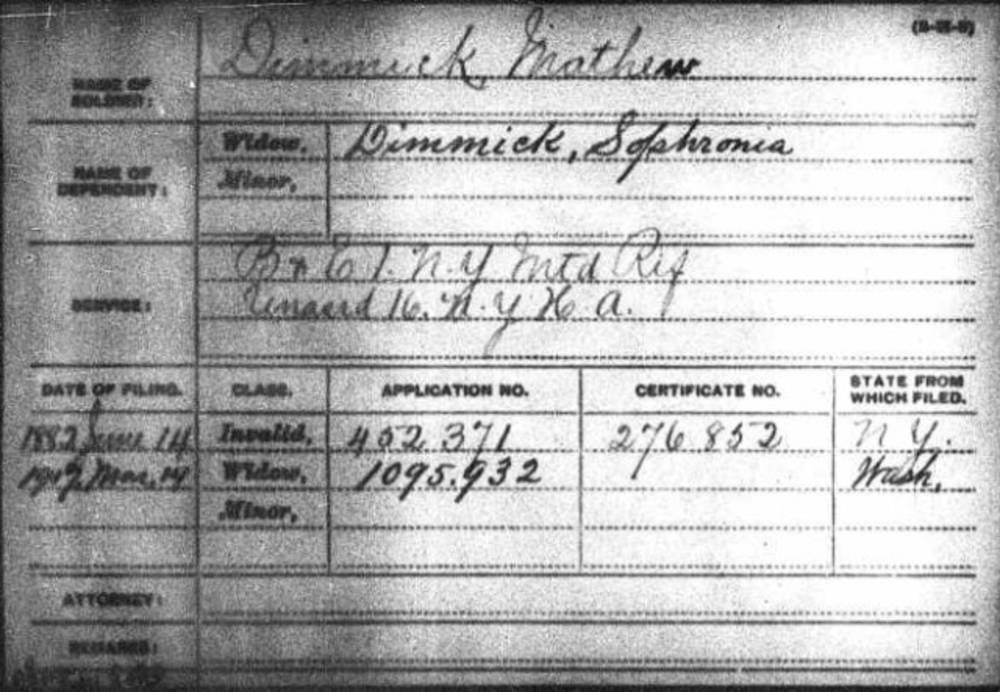 NAME OF SOLDIER: Dimmick, Mathew
NAME OF DEPENDENT: Widow, Dimmick, Sophronia
Minor,
SERVICE: B & E 1. N.Y Mtd Rif
Unassd 16. N.Y H.A.
DATE OF FILING. CLASS. APPLICATION NO. CERTIFICATE NO. STATE FROM WHICH FILED.
1882 June 14 Invalid, 452 371 276 852 N Y.
Mar, 14 Widow, 1095.932 Wash.
Minor,
ATTORNEY:
REMARKS: